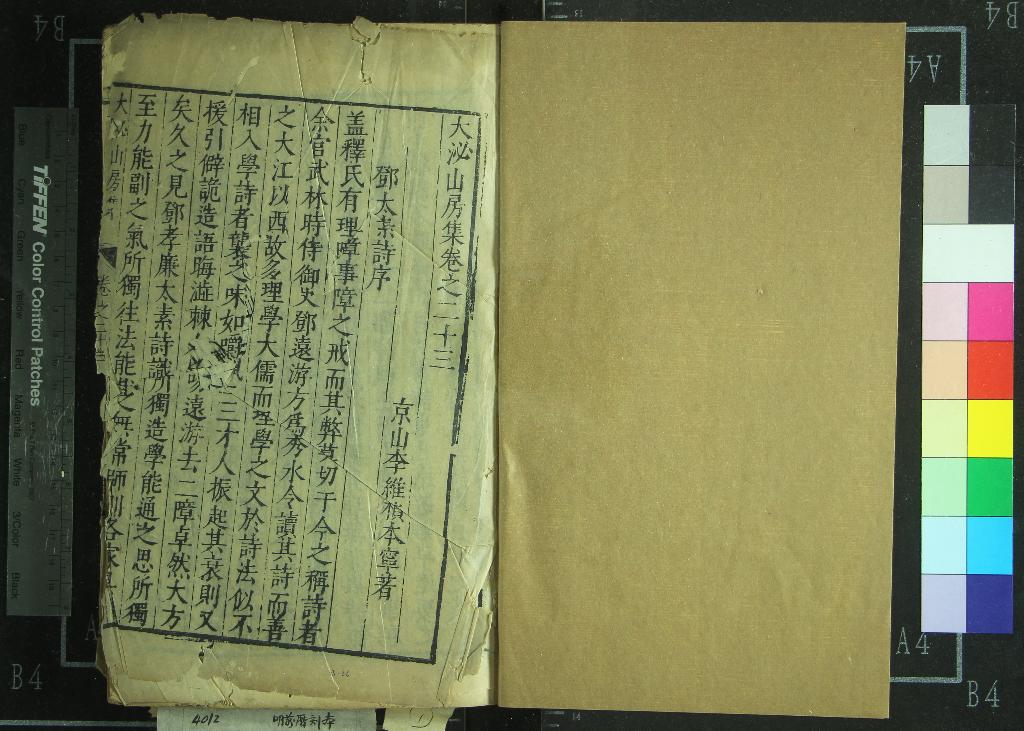 大泌山房集卷之二十三
京山李維楨本寧著
鄧太素詩序
盖釋氏有理障事障之戒而其弊莫切于今之稱詩者
余官武林時侍御史鄧遠游方為秀水令讀其詩而善
之大江以西故多理學大儒而理學之文於詩法似不
相入學詩者襲之味如嚼 二三才人振起其衰則又
援引僻詭造語晦澁棘 遠游去二障卓然大方
矣久之見鄧孝廉太素詩識所獨造學能通之思所獨
至力能副之氣所獨往法能 之無常師則各家
大泌山房集
卷之二十三
TIFFEN Color Control Patches
Blue Cyan Green Yellow Red Magenta White 3/Color Black
B4
B4
A4
A4
B4
B4
4012
明萬曆刻本